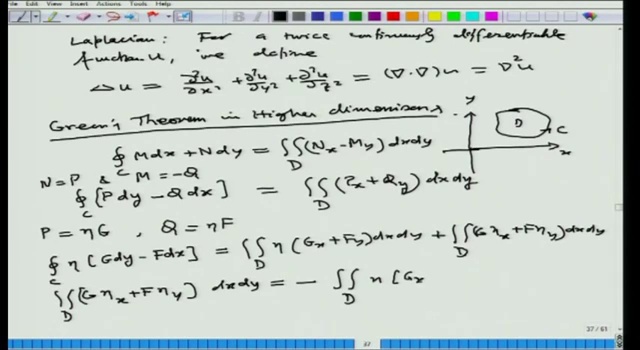 File Edit View Insert Actions Tools Help
Laplacian: For a twice continuously differentiable
function u, we define
Δu = ∂²u/∂x² + ∂²u/∂y² + ∂²u/∂z² = (∇·∇)u = ∇²u
Green's Theorem in Higher dimensions
y
D
C
x
∮_C Mdx + Ndy = ∬_D (N_x - M_y) dxdy
N = P & M = -Q
∮_C [Pdy - Qdx] = ∬_D (P_x + Q_y) dxdy
P = ηG , Q = ηF
∮_C η [Gdy - Fdx] = ∬_D η (G_x + F_y) dxdy + ∬_D (Gη_x + Fη_y) dxdy
∬_D [Gη_x + Fη_y] dxdy = - ∬_D η [G_x
37 / 61
37